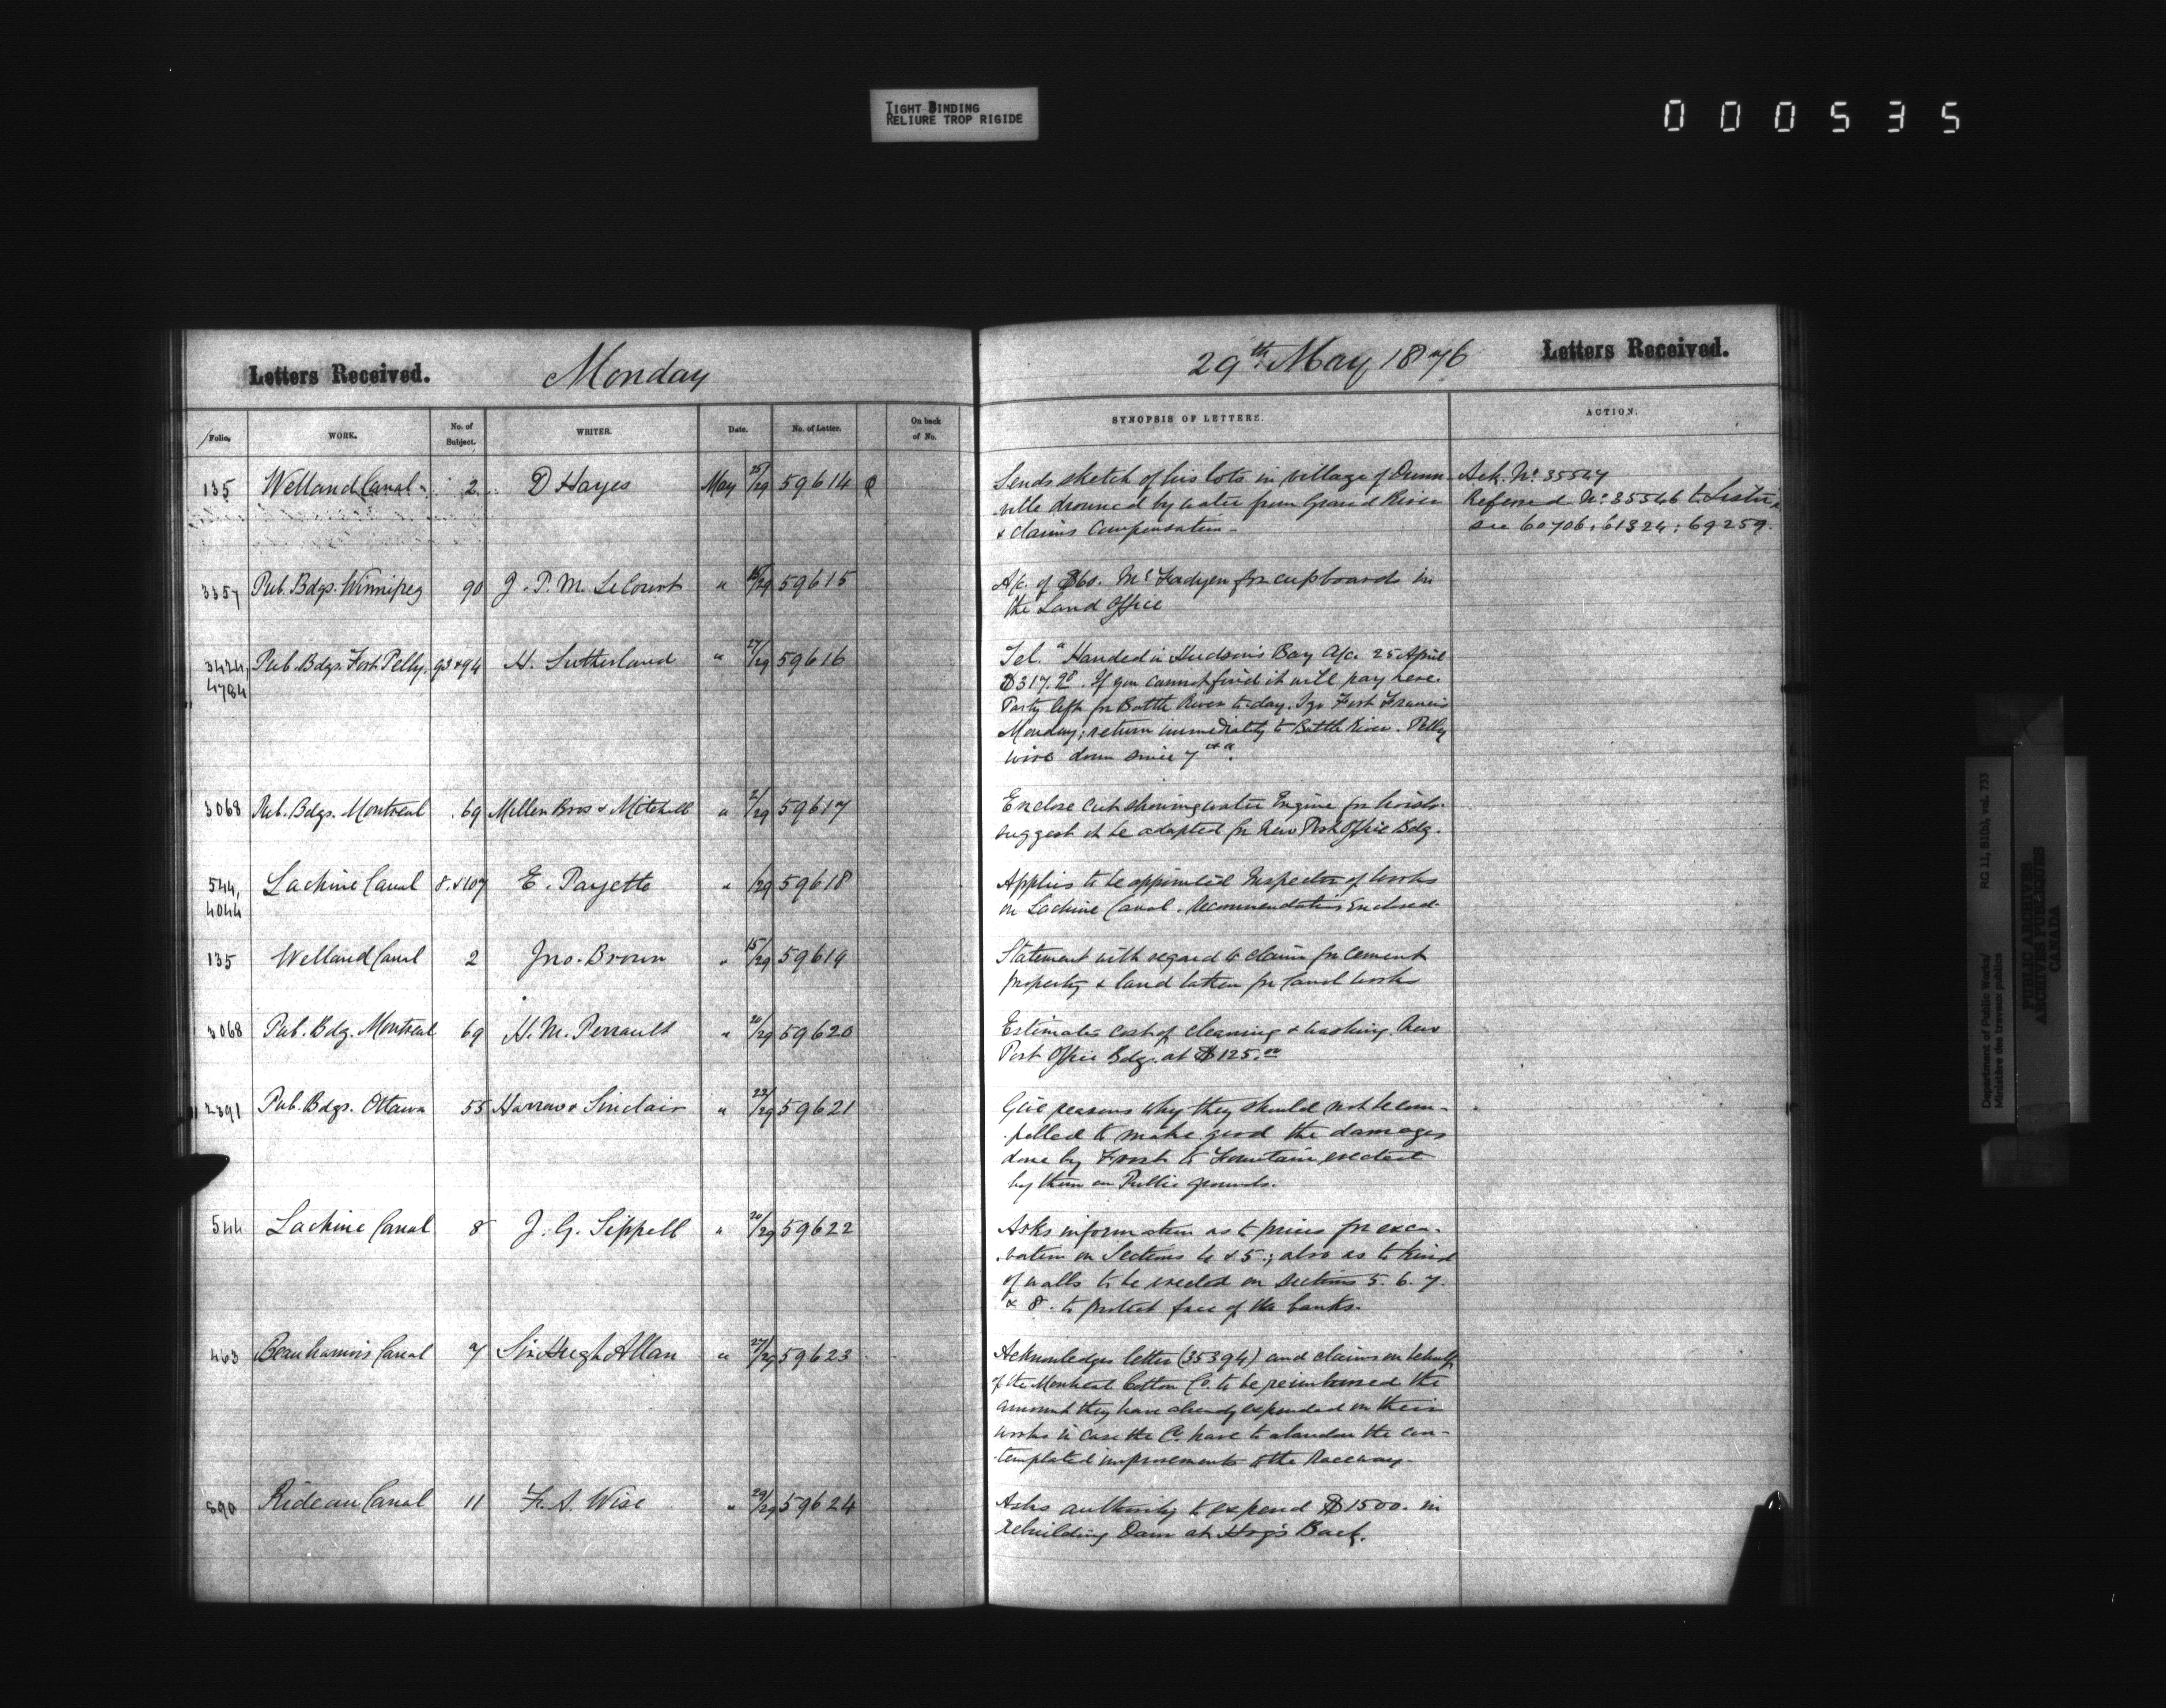 TIGHT BINDING
RELIURE TROP RIGIDE
000535
Letters Received. Monday
Folio. WORK. No. of Subject. WRITER. Date. No. of Letter. On back of No.
135 Welland Canal 2 D Hayes May 25/29 59614
3357 Pub. Bdgs. Winnipeg 90 J. P. M. LeCourt " /29 59615
3424, Pub. Bdgs. Fort Pelly. 93 & 94 H. Sutherland " 27/29 59616
4784
3068 Pub. Bdgs. Montreal 69 Millen Bros & Mitchell " /29 59617
544, Lachine Canal 8 & 107 E. Payette " /29 59618
4044
135 Welland Canal 2 Jno. Brown " 15/29 59619
3068 Pub. Bdg. Montreal 69 H. M. Perrault " /29 59620
2391 Pub. Bdgs. Ottawa 55 & Sinclair " 22/29 59621
544 Lachine Canal 8 J. G. Sippell " /29 59622
463 Beauharnois Canal 7 Sir Hugh Allan " 27/29 59623
890 Rideau Canal 11 F. A. Wise " 29/29 59624
29th May 1876 Letters Received.
SYNOPSIS OF LETTERS. ACTION.
Sends sketch of his lots in village of Dunn
ville drowned by water from Grand River
& claims Compensation -
Ack. No. 35547
Referred No. 35546 to
see 60706; 61324; 69259.
A/c. of $60. McFadyen for cupboards in
the Land Office
Tel. "Handed in Hudson's Bay A/c. 25 April
$317.28. If you cannot find it will pay here.
Party left for Battle River to-day. I go Fort Francis
Monday; return immediately to Battle River. Pelly
wire down since 7th".
Enclose cut showing water Engine for hoists.
suggest it be adopted for New Post Office Bdg.
Applies to be appointed Inspector of works
on Lachine Canal. Recommendations Enclosed.
Statement with regard to claim for cement
property & land taken for Canal works
Estimates cost of cleaning & washing New
Post Office Bdg. at $125.00
Give reasons why they should not be com-
pelled to make good the damages
done by Frost to Fountain erected
by them on Public grounds.
Asks information as to prices for exca-
vation on Sections 4 & 5; also as to kind
of walls to be erected on sections 5. 6. 7.
& 8. to protect face of the banks.
Acknowledges letter (35394) and claims on behalf
of the Montreal Cotton Co. to be reimbursed the
amount they have already expended on their
works in case the Co. have to abandon the con-
templated improvements to the Raceway.
Asks authority to expend $1500. in
rebuilding Dam at Hog's Back.
Department of Public Works/
Ministère des travaux publics
RG 11, B1(b), vol. 733
PUBLIC ARCHIVES
ARCHIVES PUBLIQUES
CANADA